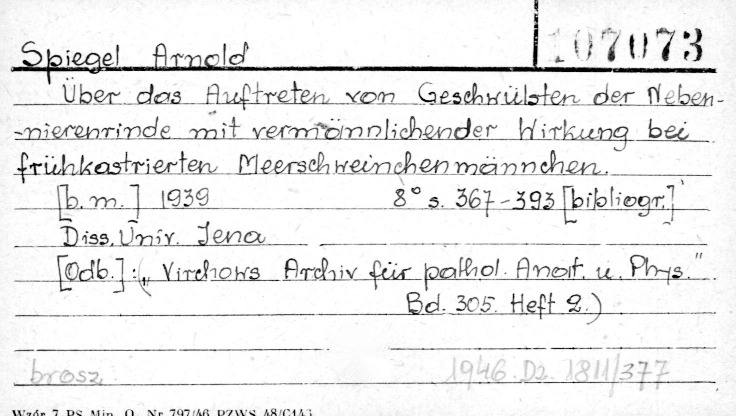 107073
Spiegel Arnold
Über das Auftreten von Geschwülsten der Neben-
-nierenrinde mit vermännlichender Wirkung bei
frühkastrierten Meerschweinchenmännchen.
[b.m.] 1939 8° s. 367-393 [bibliogr.]
Diss. Univ. Jena
[Odb.]: („Virchows Archiv für pathol. Anat. u. Phys."
Bd. 305. Heft 2.)
brosz. 1946. Dz. 1811/377
Wzór 7 PS Min. O. Nr 797/46 PZWS 48/